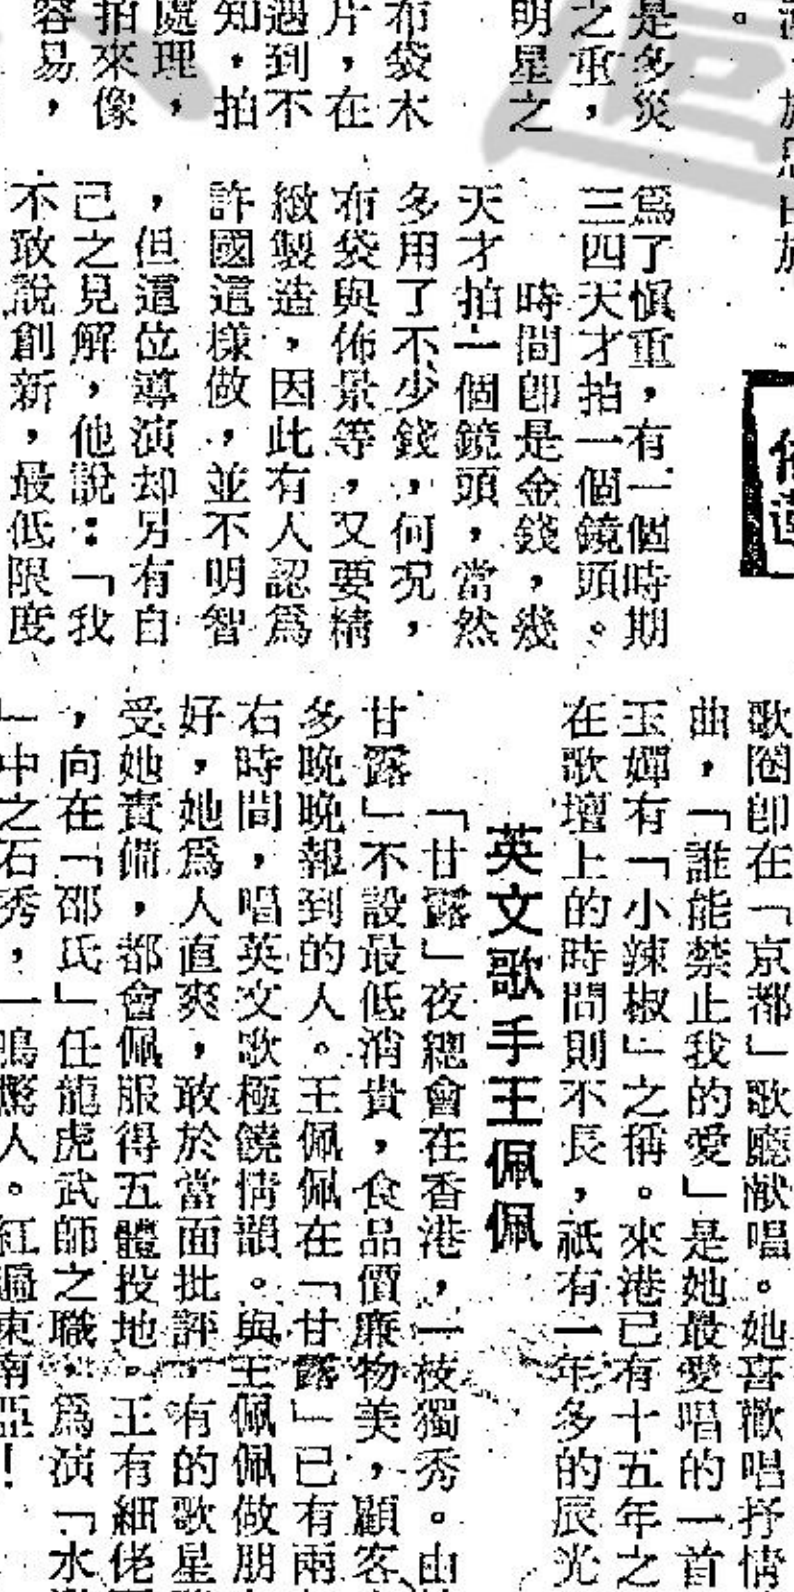 是多災
之重，
明星之
布袋木
片，在
遇到不
知，拍
處理，
拍來像
容易，
爲了愼重，有一個時期
三四天才拍一個鏡頭。
時間卽是金錢，幾
天才拍一個鏡頭，當然
多用了不少錢，何況，
布袋與佈景等，又要精
緻製造，因此有人認爲
許國這樣做，並不明智
，但這位導演却另有自
己之見解，他說：「我
不敢說創新，最低限度
歌圈卽在「京都」歌廳献唱。她喜歡唱抒情
曲，「誰能禁止我的愛」是她最愛唱的一首
玉嬋有「小辣椒」之稱。來港已有十五年之
在歌壇上的時間則不長，祇有一年多的辰光
英文歌手王佩佩
「甘露」夜總會在香港，一枝獨秀。由
甘露」不設最低消費，食品價廉物美，顧客
多晚晚報到的人。王佩佩在「甘露」已有兩
右時間，唱英文歌極饒情韻。與王佩佩做朋
好，她爲人直爽，敢於當面批評，有的歌星
受她責備，都會佩服得五體投地。王有細佬
，向在「邵氏」任龍虎武師之職，爲演「水
」中之石秀，一鳴驚人。紅遍東南亞！